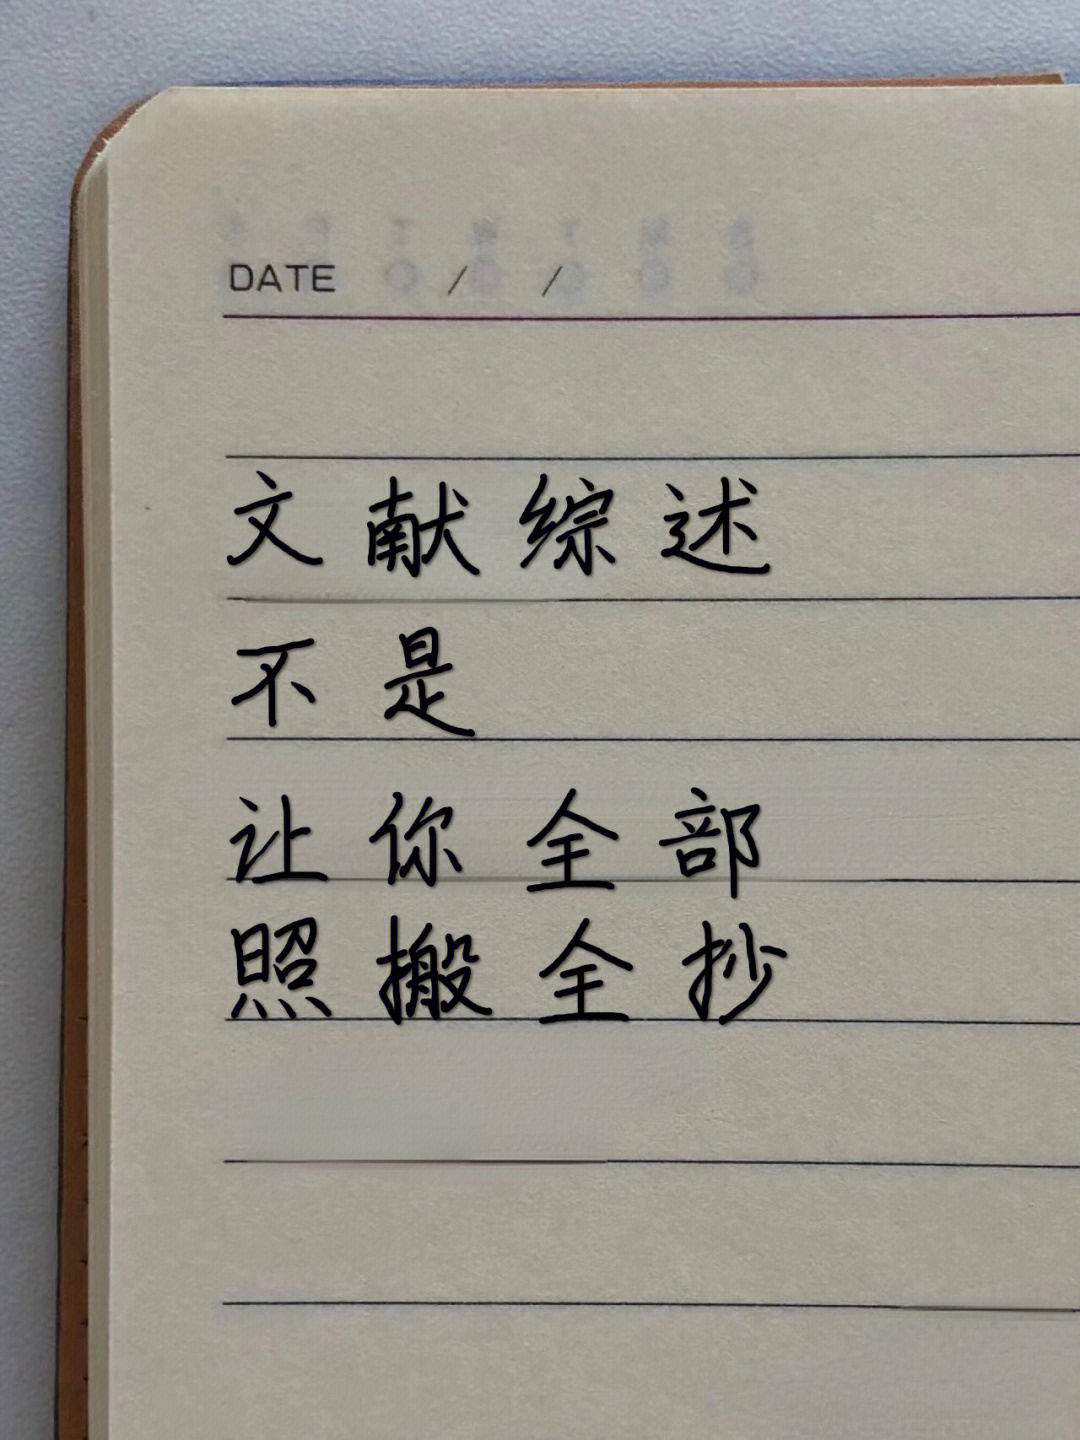 DATE / /
文献综述
不是
让你全部
照搬全抄